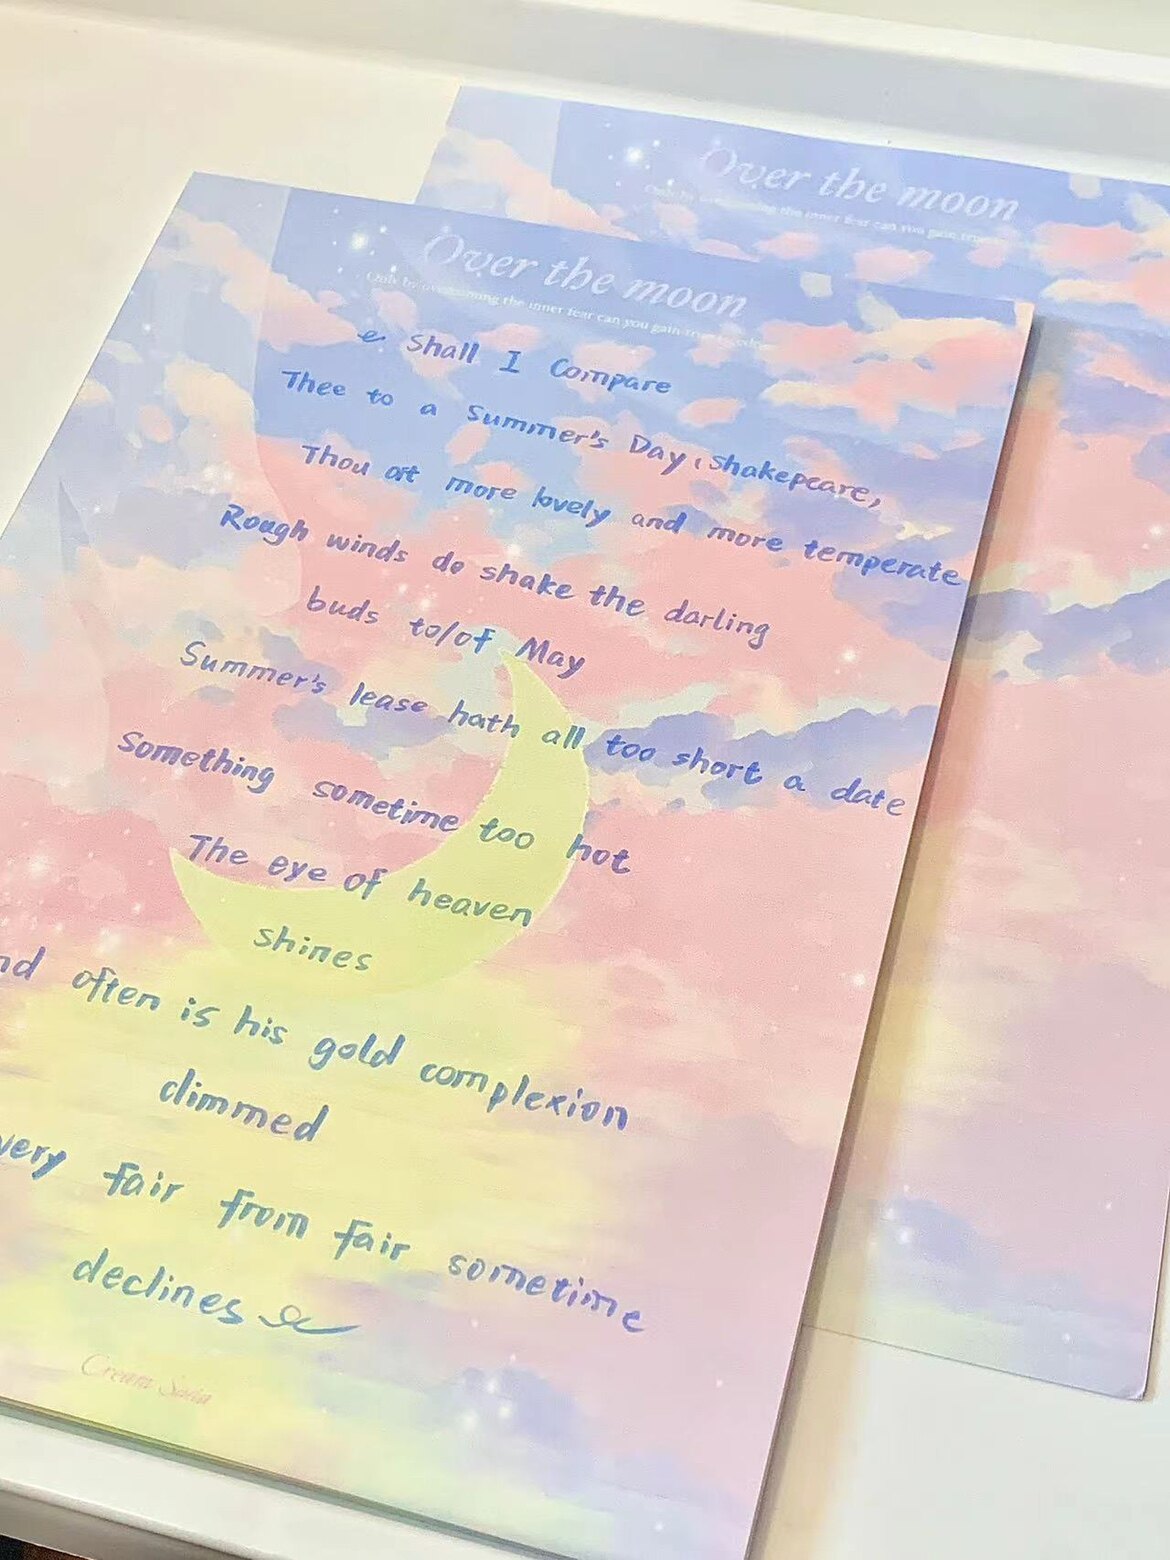 Over the moon
the inner fear can you gain
Over the moon
Only by overcoming the inner fear can you gain
Shall I Compare
Thee to a Summer's Day, Shakepcare,
Thou art more lovely and more temperate
Rough winds do shake the darling
buds to/of May
Summer's lease hath all too short a date
Something sometime too hot
The eye of heaven
shines
nd often is his gold complexion
dimmed
very fair from fair sometime
declines
Cream Soda